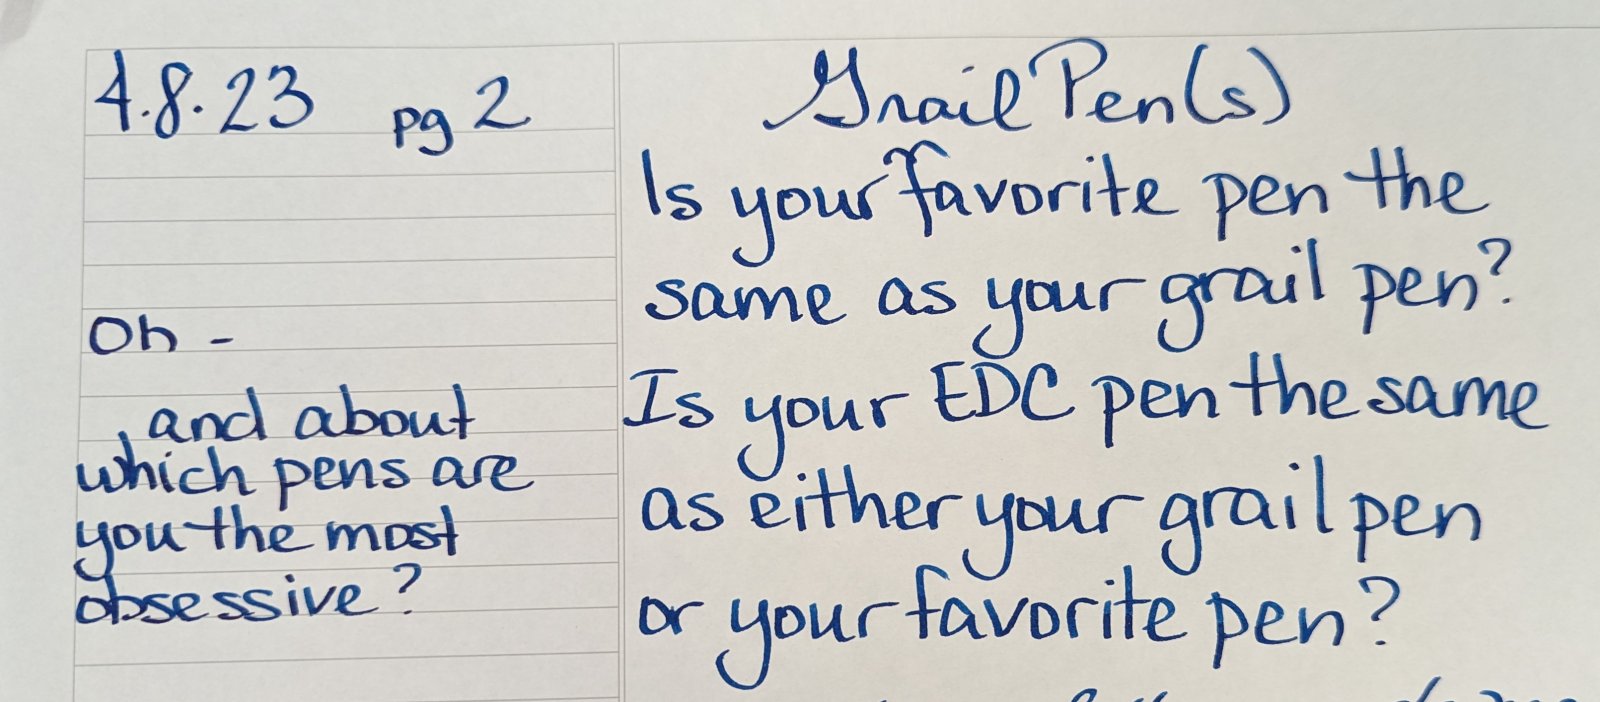 4.8.23 pg 2
Oh -
, and about
which pens are
you the most
obsessive?
Grail Pen(s)
Is your favorite pen the
same as your grail pen?
Is your EDC pen the same
as either your grail pen
or your favorite pen?